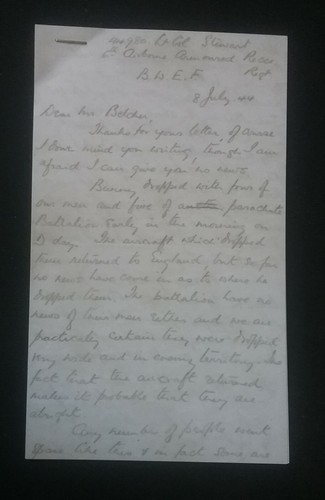 Lt Col Stewart
6 Airborne Armoured Recce
Regt
B.W.E.F.
8 July 44
Dear Mrs Belcher,
Thanks for your letter, of course
I dont mind you writing, though I am
afraid I can give you no news
Bunny dropped with four of
our men and five of a parachute
Battalion early in the morning on
D day. The aircraft which dropped
them returned to England, but so far
no news have come in as to where he
dropped them. The battalion have no
news of their men either and we are
practically certain they were dropped
very wide and in enemy territory. The
fact that the aircraft returned
makes it probable that they are
alright.
Any number of people went
like this & in fact some are